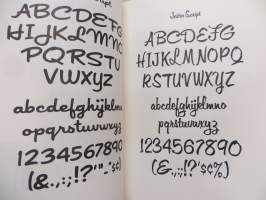 ABCDEFG
HIJKLMNO
PQRSTU
VWXYZ
abcdefghijklm
nopqrstuvwxyz
1234567890
Script
ABCDEFG
HIJKLMNOPQ
RSTUVWXYZ
abcdefghijklmno
pqrstuvwxyz
1234567890